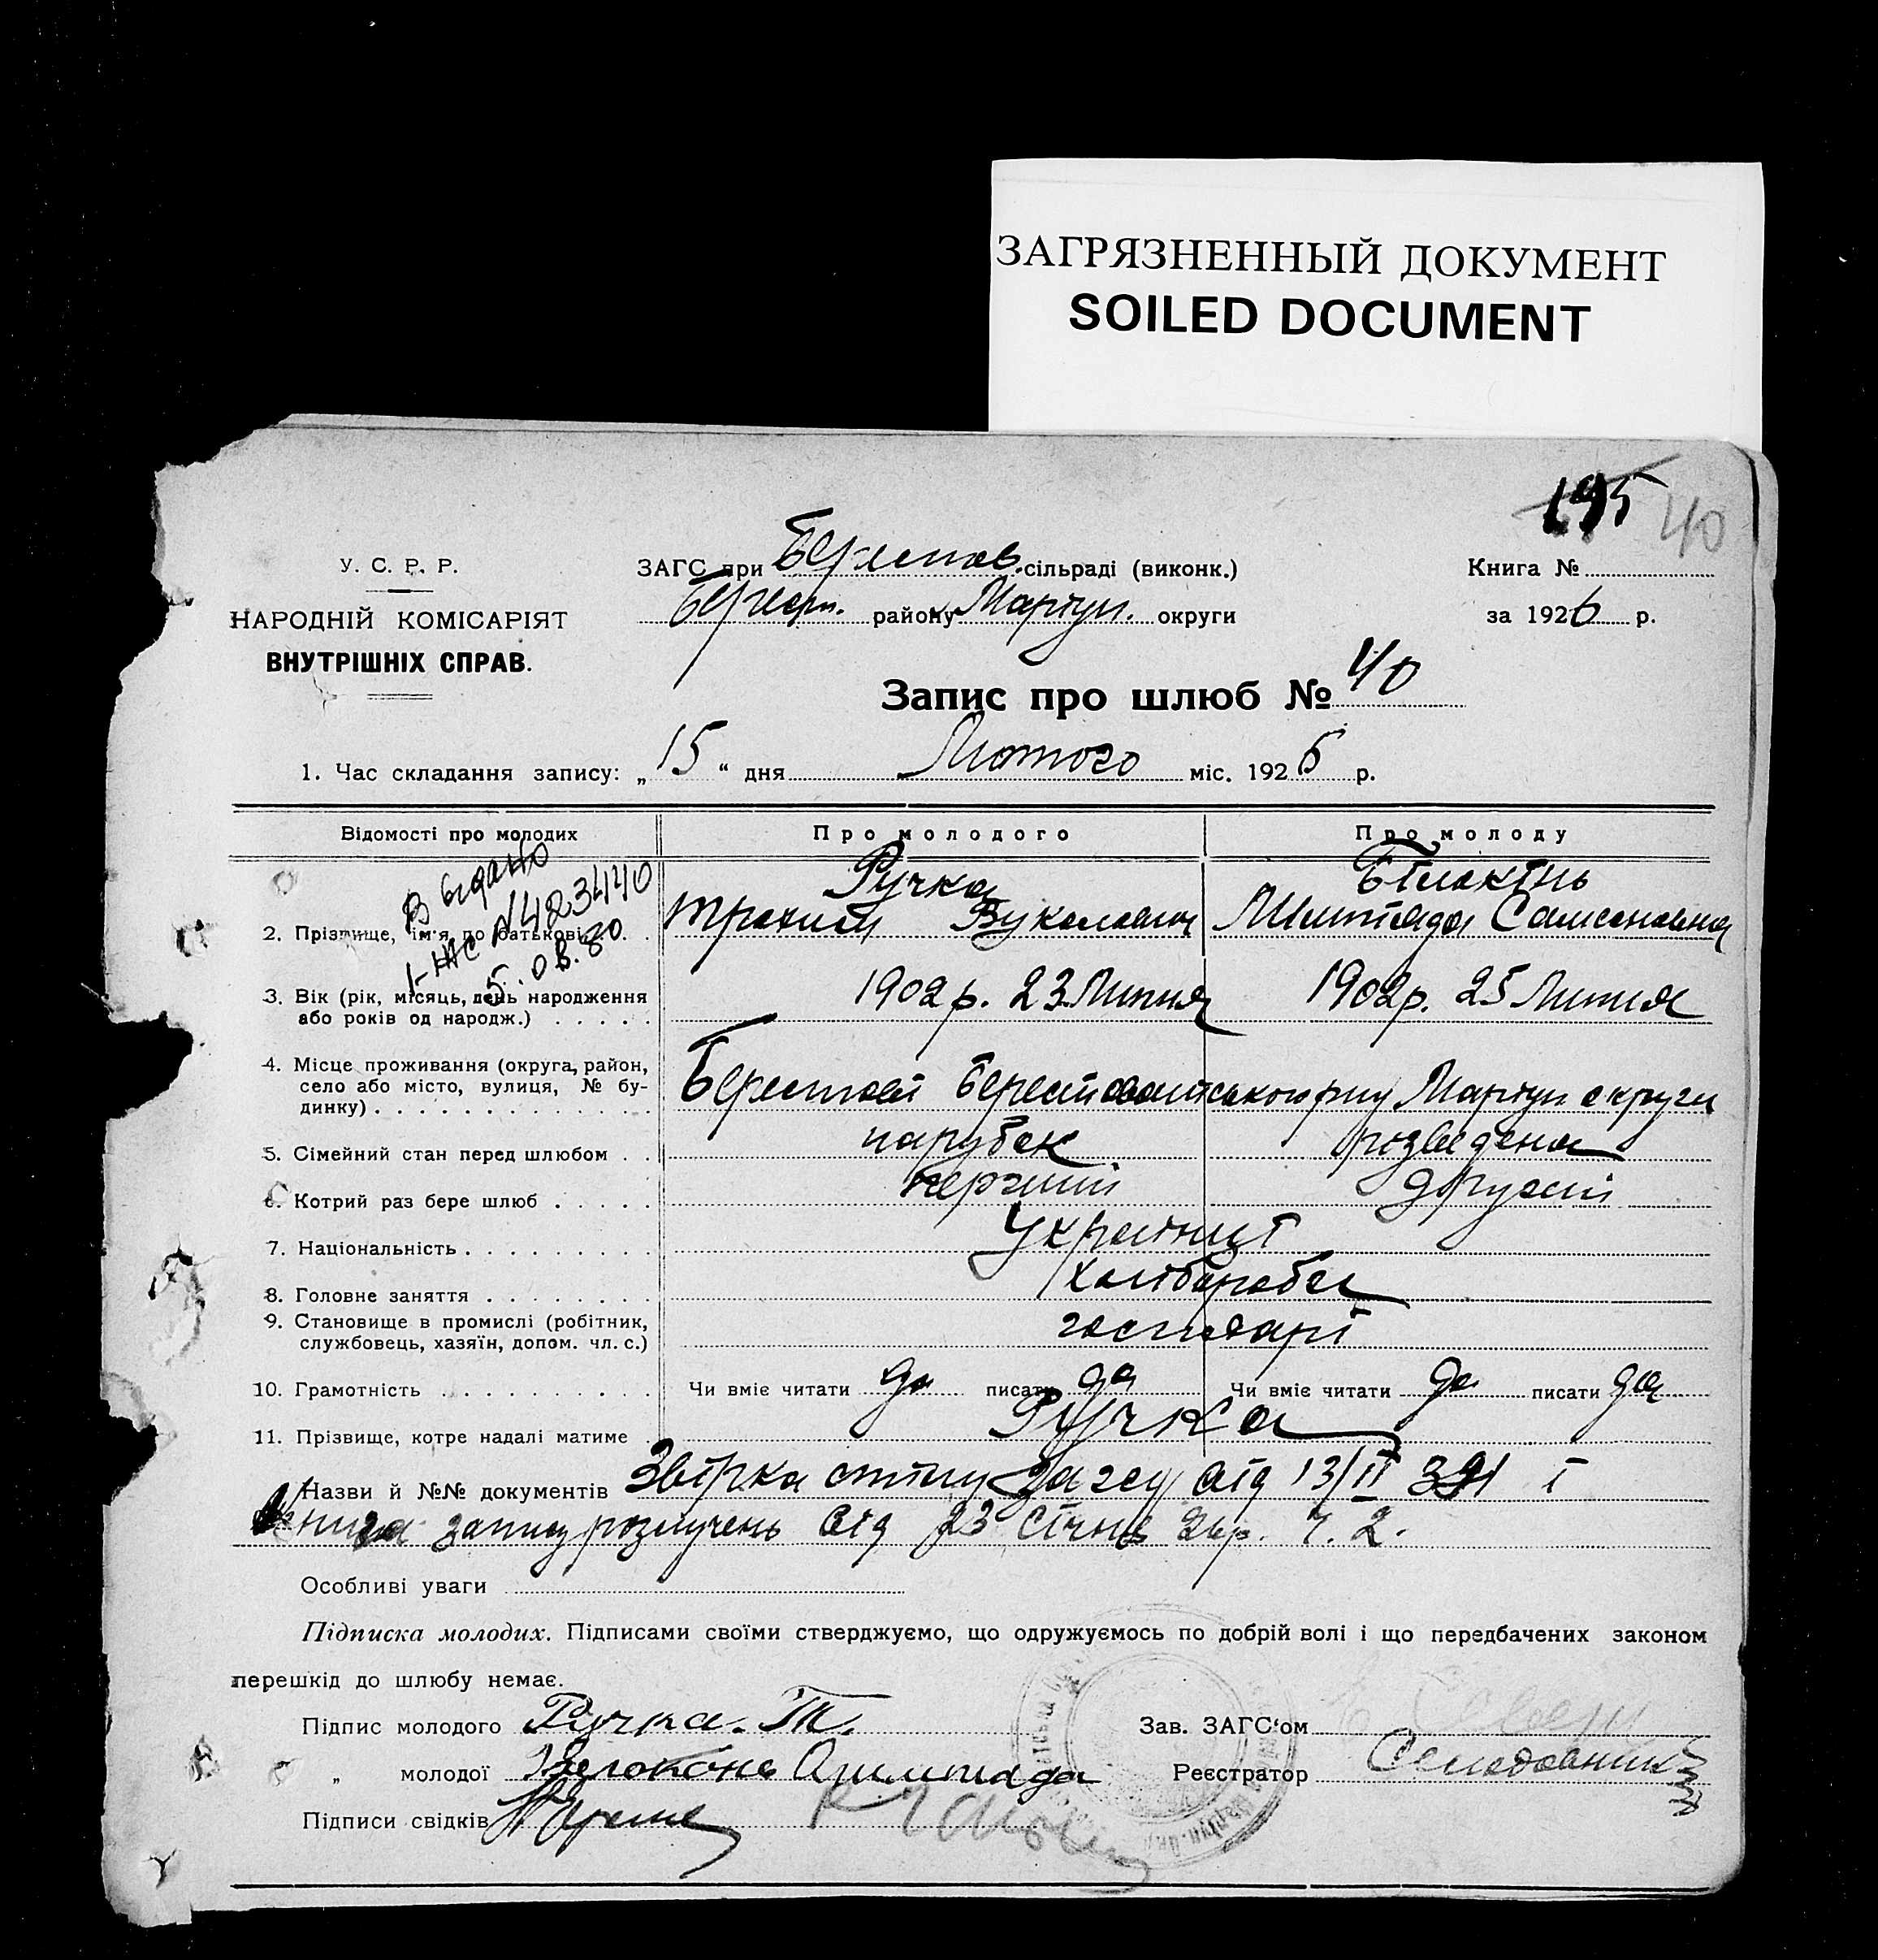 ЗАГРЯЗНЕННЫЙ ДОКУМЕНТ
SOILED DOCUMENT
195 40
У. С. Р. Р.
НАРОДНІЙ КОМІСАРІЯТ
ВНУТРІШНІХ СПРАВ.
ЗАГС при Берестов. сільраді (виконк.)
Берест. району Маріуп. округи
Книга №
за 1926 р.
Запис про шлюб № 40
1. Час складання запису: „15“ дня Лютого міс. 1926 р.
Відомості про молодих Про молодого Про молоду
Видано
I-НС №423440
5.08.80
2. Прізвище, ім'я, по батькові Ручка Трохим Вуколович Білоконь Самсоновна
3. Вік (рік, місяць, день народження або років од народж.) 1902 р. 23 Липня 1902 р. 25 Липня
4. Місце проживання (округа, район, село або місто, вулиця, № будинку) Берестовій Берестоватського р-ну Маріуп округи
5. Сімейний стан перед шлюбом парубок розведена
6. Котрий раз бере шлюб перший другий
7. Національність Українці
8. Головне заняття хлібороби
9. Становище в промислі (робітник, службовець, хазяїн, допом. чл. с.) господарі
10. Грамотність Чи вміє читати да писати да Чи вміє читати да писати да
11. Прізвище, котре надалі матиме Ручка
Назви й №№ документів від 13/II 391 і
Книга запису розлучень від 23 Січня 26 р. ч. 2.
Особливі уваги
Підписка молодих. Підписами своїми стверджуємо, що одружуємось по добрій волі і що передбачених законом
перешкід до шлюбу немає.
Підпис молодого Ручка. Т.
Зав. ЗАГС'ом
„ молодої Белоконь Олимпиада
Реєстратор
Підписи свідків